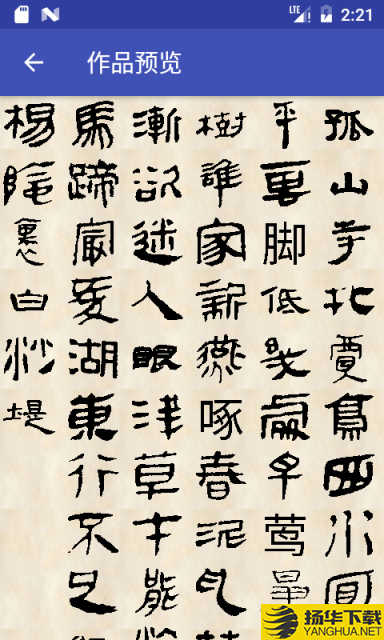 2:21
作品预览
孤山寺北賈亭西水面
平雲脚低幾處早莺
樹誰家新燕啄春泥
漸欲迷人眼淺草才能
馬蹄最愛湖東行不足
楊陰裏白沙堤
扬华下载
YANGHUA.NET